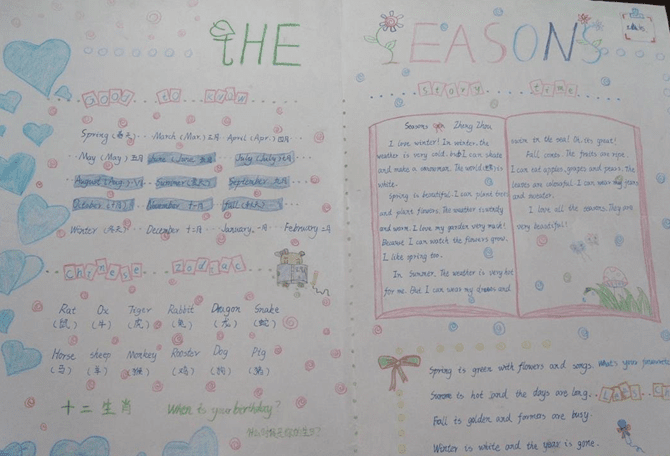 THE SEASONS
good to know
story time
Spring (春天) March (Mar.) 三月 April (Apr.) 四月
May (May) 五月 June (June 六月 July (July) 七月
August (Aug.) 八月 Summer (夏天) September 九月
October 十月 November 十一月 fall (秋天)
Winter (冬天) December 十二月 January 一月 February 二月
Chinese zodiac
Rat Ox Tiger Rabbit Dragon Snake
(鼠) (牛) (虎) (兔) (龙) (蛇)
Horse sheep Monkey Rooster Dog Pig
(马) (羊) (猴) (鸡) (狗) (猪)
十二生肖 When is your birthday?
Seasons Zhang Zhen
I love winter! In winter, the
weather is very cold. But I can skate
and make a snowman. The world is in
white.
Spring is beautiful. I can plant trees
and plant flowers. The weather is windy
and warm. I love my garden very much!
Because I can watch the flowers grow.
I like spring too.
In Summer. The weather is very hot
for me. But I can wear my dresses and
swim in the sea! Oh, it's great!
Fall comes. The fruits are ripe.
I can eat apples, grapes and pears. The
leaves are colourful. I can wear my jeans
and sweater.
I love all the seasons. They are
very beautiful!
Spring is green with flowers and songs. What's your favourite
Summer is hot and the days are long.
Fall is golden and farmers are busy.
Winter is white and the year is gone.